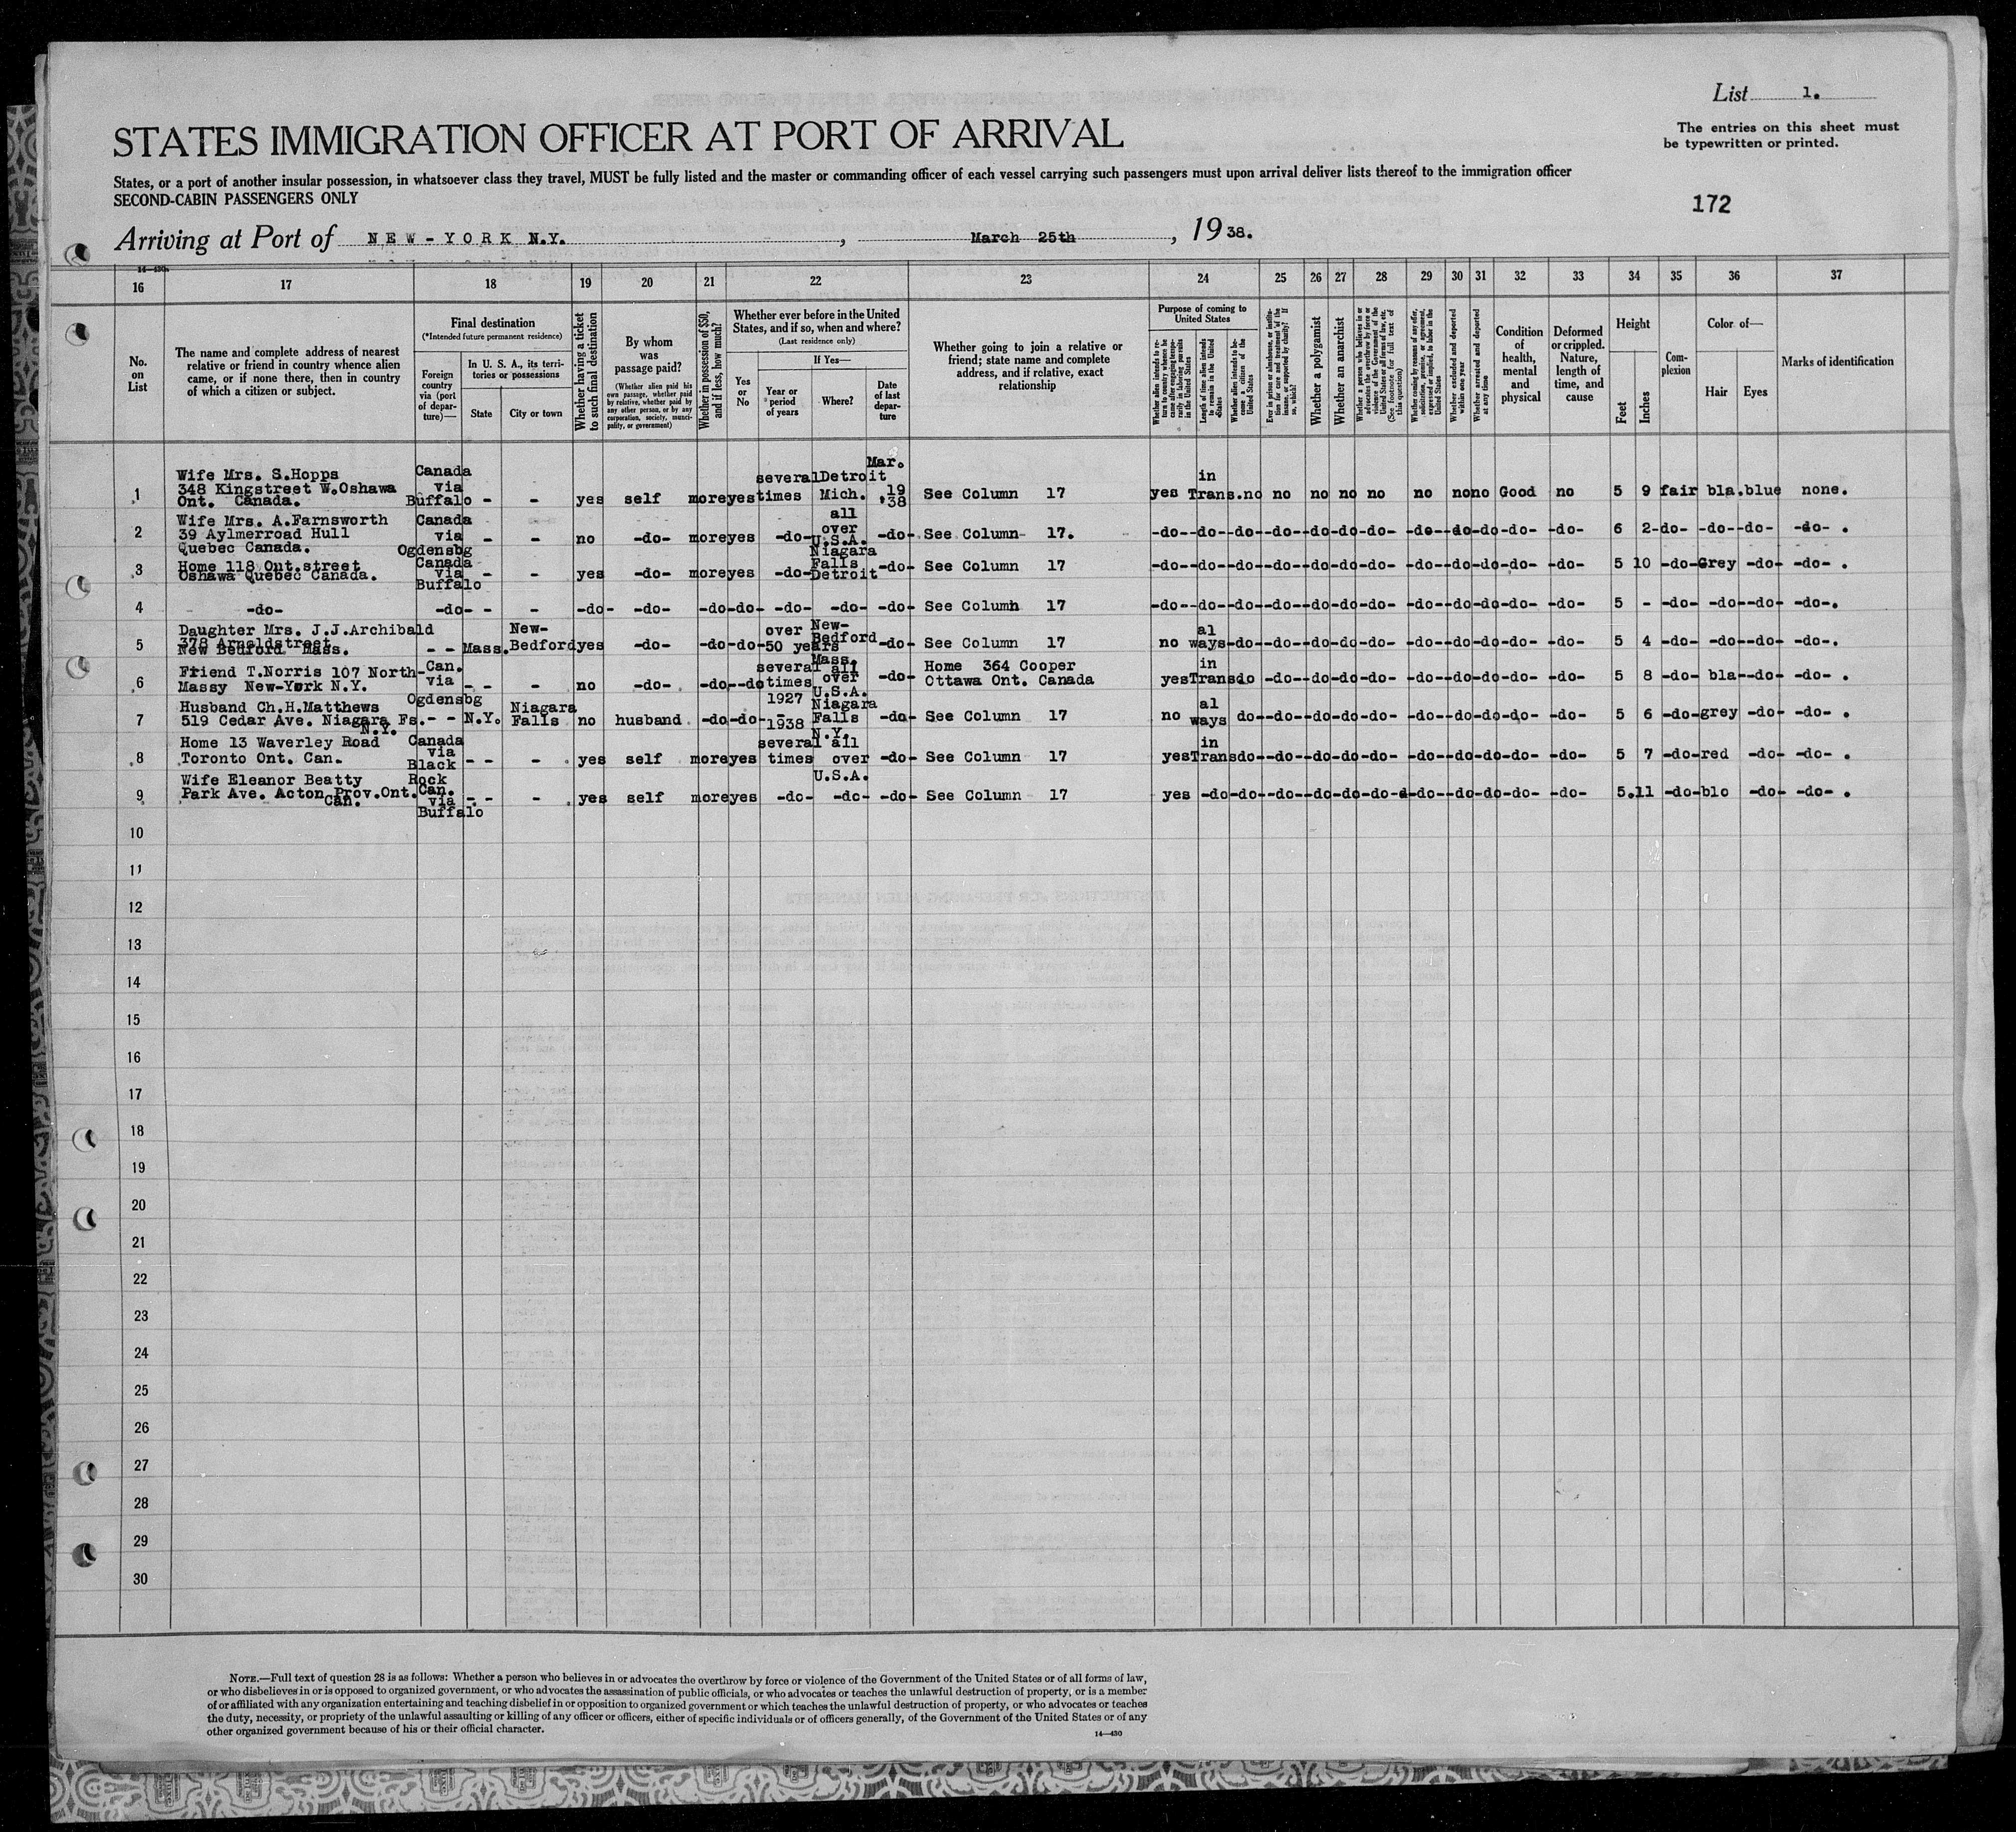 List 1.
The entries on this sheet must
be typewritten or printed.
STATES IMMIGRATION OFFICER AT PORT OF ARRIVAL
States, or a port of another insular possession, in whatsoever class they travel, MUST be fully listed and the master or commanding officer of each vessel carrying such passengers must upon arrival deliver lists thereof to the immigration officer
SECOND-CABIN PASSENGERS ONLY
172
Arriving at Port of NEW-YORK N.Y., March 25th, 19 38.
14—430
16 17 18 19 20 21 22 23 24 25 26 27 28 29 30 31 32 33 34 35 36 37
No. on List
The name and complete address of nearest relative or friend in country whence alien came, or if none there, then in country of which a citizen or subject.
Final destination
(*Intended future permanent residence)
Foreign country via (port of departure)—
In U. S. A., its territories or possessions
State
City or town
Whether having a ticket to such final destination
By whom was passage paid?
(Whether alien paid his own passage, whether paid by relative, whether paid by any other person, or by any corporation, society, municipality, or government)
Whether in possession of $50, and if less, how much?
Whether ever before in the United States, and if so, when and where?
(Last residence only)
Yes or No
If Yes—
Year or period of years
Where?
Date of last departure
Whether going to join a relative or friend; state name and complete address, and if relative, exact relationship
Purpose of coming to United States
Whether alien intends to return to country whence he came after engaging temporarily in laboring pursuits in the United States
Length of time alien intends to remain in the United States
Whether alien intends to become a citizen of the United States
Ever in prison or almshouse, or institution for care and treatment of the insane, or supported by charity? If so, which?
Whether a polygamist
Whether an anarchist
Whether a person who believes in or advocates the overthrow by force or violence of the Government of the United States or all forms of law, etc. (See footnote for full text of this question)
Whether coming by reason of any offer, solicitation, promise, or agreement, expressed or implied, to labor in the United States
Whether excluded and deported within one year
Whether arrested and deported at any time
Condition of health, mental and physical
Deformed or crippled. Nature, length of time, and cause
Height
Feet
Inches
Complexion
Color of—
Hair
Eyes
Marks of identification
1 Wife Mrs. S.Hopps 348 Kingstreet W.Oshawa Ont. Canada. Canada via Buffalo - - yes self more yes several times Detroit Mich. Mar. 19 ,38 See Column 17 yes in Trans. no no no no no no no no Good no 5 9 fair bla. blue none.
2 Wife Mrs. A.Farnsworth 39 Aylmerroad Hull Quebec Canada. Canada via Ogdensbg - - no -do- more yes -do- all over U.S.A. -do- See Column 17. -do- -do- -do- -do- -do- -do- -do- -do- -do- -do- -do- -do- 6 2 -do- -do- -do- -do- .
3 Home 118 Ont.street Oshawa Quebec Canada. Canada via Buffalo - - yes -do- more yes -do- Niagara Falls Detroit -do- See Column 17 -do- -do- -do- -do- -do- -do- -do- -do- -do- -do- -do- -do- 5 10 -do- Grey -do- -do- .
4 -do- -do- - - -do- -do- -do- -do- -do- -do- -do- See Column 17 -do- -do- -do- -do- -do- -do- -do- -do- -do- -do- -do- -do- 5 - -do- -do- -do- -do-.
5 Daughter Mrs. J.J.Archibald 378 Arnoldstreet New Bedford Mass. - - Mass. New-Bedford yes -do- -do- -do- over 50 years New-Bedford Mass. -do- See Column 17 no al ways -do- -do- -do- -do- -do- -do- -do- -do- -do- -do- 5 4 -do- -do- -do- -do-.
6 Friend T.Norris 107 North Massy New-York N.Y. Can. via Ogdensbg - - - no -do- -do- -do several times all over U.S.A. -do- Home 364 Cooper Ottawa Ont. Canada yes in Trans do -do- -do- -do- -do- -do- -do- -do- -do- -do- 5 8 -do- bla- -do- -do- .
7 Husband Ch.H.Matthews 519 Cedar Ave. Niagara Fs. N.Y. - - N.Y. Niagara Falls no husband -do- -do- 1927 - 1938 Niagara Falls N.Y. -do- See Column 17 no al ways do- -do- -do- -do- -do- -do- -do- -do- -do- -do- 5 6 -do- grey -do- -do- .
8 Home 13 Waverley Road Toronto Ont. Can. Canada via Black Rock - - - yes self more yes several times all over U.S.A. -do- See Column 17 yes in Trans do- -do- -do- -do- -do- -do- -do- -do- -do- -do- 5 7 -do- red -do- -do- .
9 Wife Eleanor Beatty Park Ave. Acton Prov.Ont. Can. Can. via Buffalo - - - yes self more yes -do- -do- -do- See Column 17 yes -do- -do- -do- -do- -do- -do- -do- -do- -do- -do- -do- 5.11 -do- blo -do- -do- .
10
11
12
13
14
15
16
17
18
19
20
21
22
23
24
25
26
27
28
29
30
NOTE.—Full text of question 28 is as follows: Whether a person who believes in or advocates the overthrow by force or violence of the Government of the United States or of all forms of law,
or who disbelieves in or is opposed to organized government, or who advocates the assassination of public officials, or who advocates or teaches the unlawful destruction of property, or is a member
of or affiliated with any organization entertaining and teaching disbelief in or opposition to organized government or which teaches the unlawful destruction of property, or who advocates or teaches
the duty, necessity, or propriety of the unlawful assaulting or killing of any officer or officers, either of specific individuals or of officers generally, of the Government of the United States or of any
other organized government because of his or their official character.
14—430